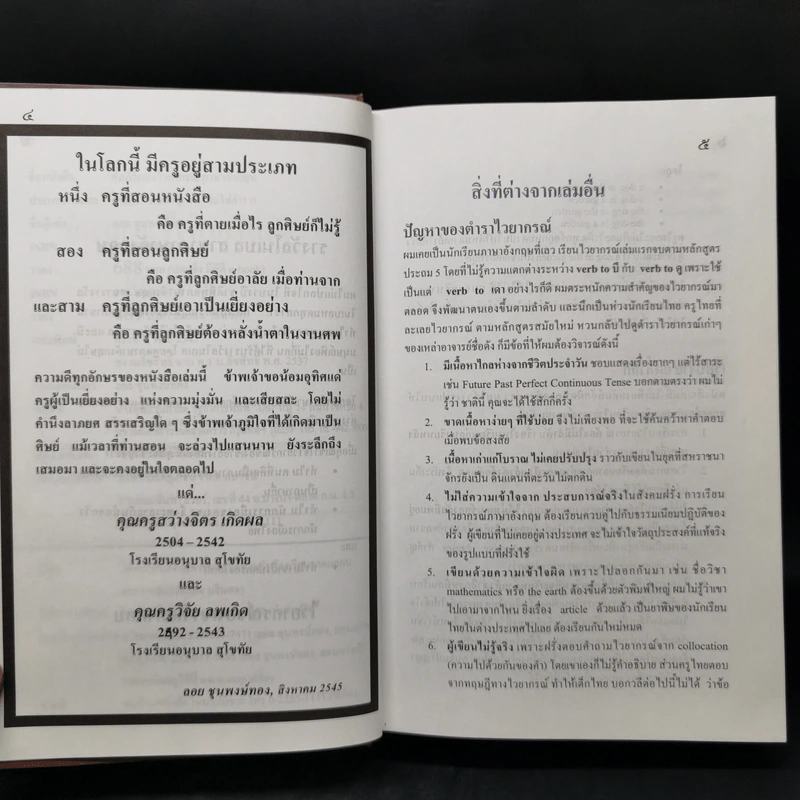 ๔
ในโลกนี้ มีครูอยู่สามประเภท
หนึ่ง ครูที่สอนหนังสือ
คือ ครูที่ตายเมื่อไร ลูกศิษย์ก็ไม่รู้
สอง ครูที่สอนลูกศิษย์
คือ ครูที่ลูกศิษย์อาลัย เมื่อท่านจาก
และสาม ครูที่ลูกศิษย์เอาเป็นเยี่ยงอย่าง
คือ ครูที่ลูกศิษย์ต้องหลั่งน้ำตาในงานศพ
ความดีทุกอักษรของหนังสือเล่มนี้ ข้าพเจ้าขอน้อมอุทิศแด่
ครูผู้เป็นเยี่ยงอย่าง แห่งความมุ่งมั่น และเสียสละ โดยไม่
คำนึงลาภยศ สรรเสริญใด ๆ ซึ่งข้าพเจ้าภูมิใจที่ได้เกิดมาเป็น
ศิษย์ แม้เวลาที่ท่านสอน จะล่วงไปแสนนาน ยังระลึกถึง
เสมอมา และจะคงอยู่ในใจตลอดไป
แด่...
คุณครูสว่างจิตร เกิดผล
2504 – 2542
โรงเรียนอนุบาล สุโขทัย
และ
คุณครูวิจัย ลพเกิด
2492 – 2543
โรงเรียนอนุบาล สุโขทัย
ลอย ชุนพงษ์ทอง, สิงหาคม 2545
๕
สิ่งที่ต่างจากเล่มอื่น
ปัญหาของตำราไวยากรณ์
ผมเคยเป็นนักเรียนภาษาอังกฤษที่เลว เรียนไวยากรณ์เล่มแรกจบตามหลักสูตร
ประถม 5 โดยที่ไม่รู้ความแตกต่างระหว่าง verb to บี กับ verb to ดู เพราะใช้
เป็นแต่ verb to เดา อย่างไรก็ดี ผมตระหนักความสำคัญของไวยากรณ์มา
ตลอด จึงพัฒนาตนเองขึ้นตามลำดับ และนึกเป็นห่วงนักเรียนไทย ครูไทยที่
ละเลยไวยากรณ์ ตามหลักสูตรสมัยใหม่ หวนกลับไปดูตำราไวยากรณ์เก่าๆ
ของเหล่าอาจารย์ชื่อดัง ก็มีข้อที่ให้ผมต้องวิจารณ์ดังนี้
1. มีเนื้อหาไกลห่างจากชีวิตประจำวัน ชอบแสดงเรื่องยากๆ แต่ไร้สาระ
เช่น Future Past Perfect Continuous Tense บอกตามตรงว่า ผมไม่
รู้ว่า ชาตินี้ คุณจะได้ใช้สักกี่ครั้ง
2. ขาดเนื้อหาง่ายๆ ที่ใช้บ่อย จึงไม่เพียงพอ ที่จะใช้ค้นคว้าหาคำตอบ
เมื่อพบข้อสงสัย
3. เนื้อหาเก่าแก่โบราณ ไม่เคยปรับปรุง ราวกับเขียนในยุคที่สหราชอา
จักรยังเป็น ดินแดนที่ตะวันไม่ตกดิน
4. ไม่ใส่ความเข้าใจจาก ประสบการณ์จริงในสังคมฝรั่ง การเรียน
ไวยากรณ์ภาษาอังกฤษ ต้องเรียนควบคู่ไปกับธรรมเนียมปฏิบัติของ
ฝรั่ง ผู้เขียนที่ไม่เคยอยู่ต่างประเทศ จะไม่เข้าใจวัตถุประสงค์ที่แท้จริง
ของรูปแบบที่ฝรั่งใช้
5. เขียนด้วยความเข้าใจผิด เพราะไปลอกกันมา เช่น ชื่อวิชา
mathematics หรือ the earth ต้องขึ้นด้วยตัวพิมพ์ใหญ่ ผมไม่รู้ว่าเขา
ไปเอามาจากไหน ยิ่งเรื่อง article ด้วยแล้ว เป็นยาพิษของนักเรียน
ไทยในต่างประเทศไปเลย ต้องเรียนกันใหม่หมด
6. ผู้เขียนไม่รู้จริง เพราะฝรั่งตอบคำถามไวยากรณ์จาก collocation
(ความไปด้วยกันของคำ) โดยเขาเองก็ไม่รู้คำอธิบาย ส่วนครูไทยตอบ
จากทฤษฎีทางไวยากรณ์ ทำให้เด็กไทย บอกวลีต่อไปนี้ไม่ได้ ว่าข้อ